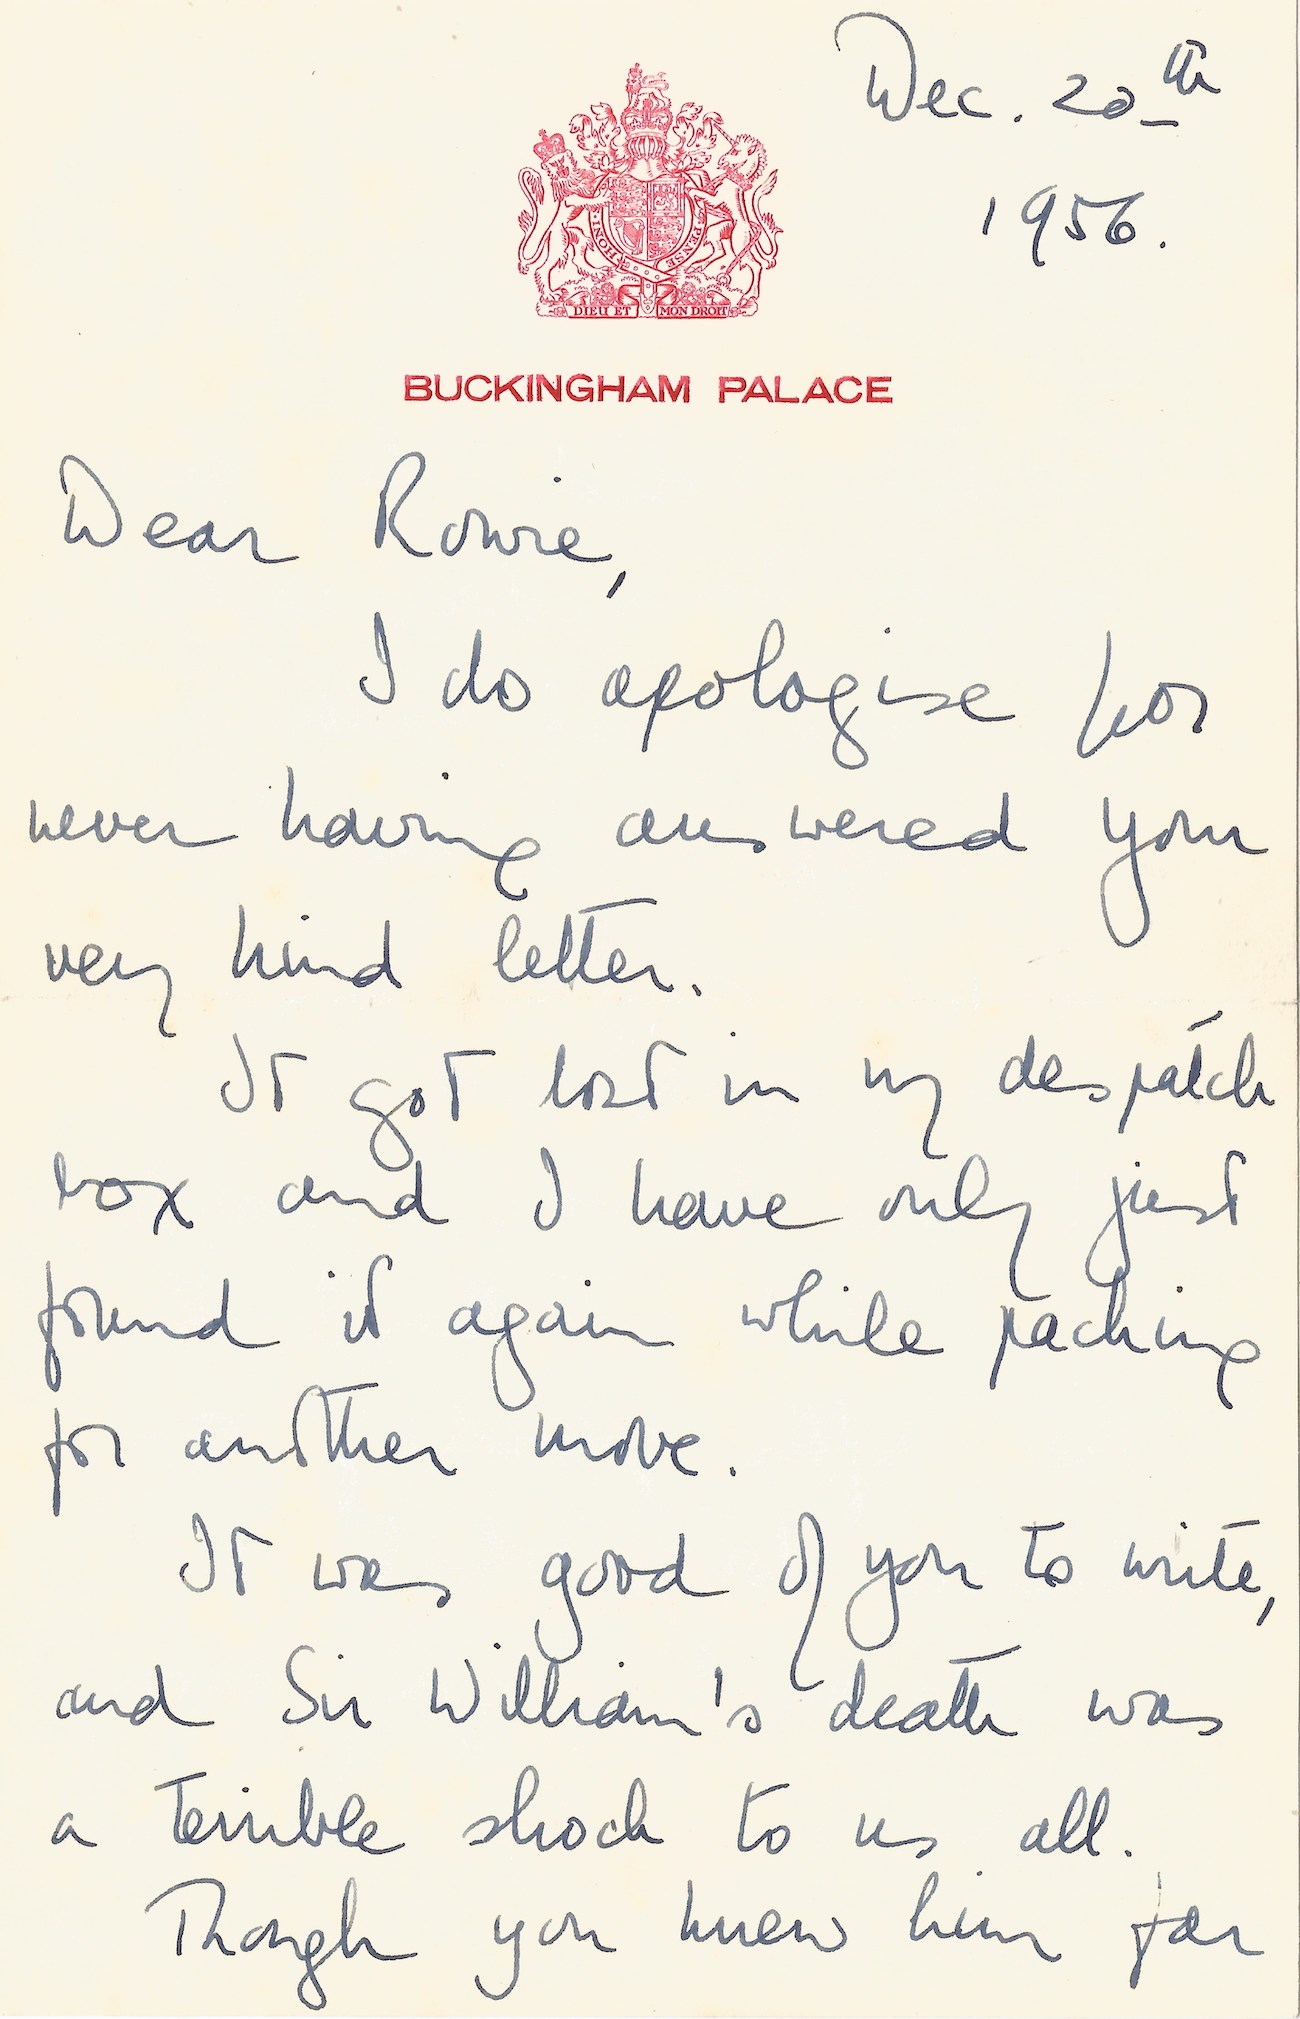 Dec. 20th
1956.
HONI PENSE
DIEU ET MON DROIT
BUCKINGHAM PALACE
Dear Rowie,
I do apologise for
never having answered your
very kind letter.
It got lost in my despatch
box and I have only just
found it again while packing
for another move.
It was good of you to write,
and Sir William's death was
a terrible shock to us all.
Though you knew him far